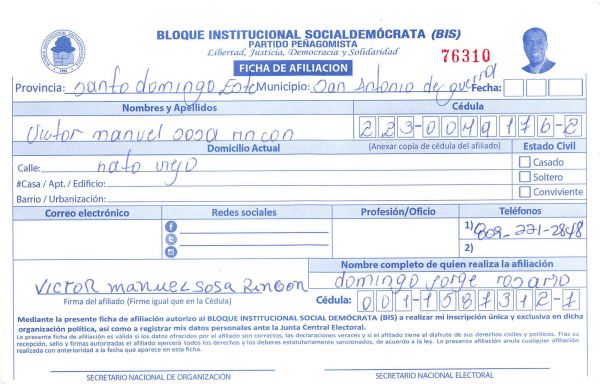 BLOQUE INSTITUCIONAL SOCIALDEMÓCRATA (BIS)
PARTIDO PEÑAGOMISTA
Libertad, Justicia, Democracia y Solidaridad
76310
FICHA DE AFILIACION
Provincia: santo domingo Este Municipio: San Antonio de guerra Fecha:
Nombres y Apellidos Cédula
Victor manuel sosa rincon 223-0049176-2
Domicilio Actual (Anexar copia de cédula del afiliado) Estado Civil
Calle: hato viejo Casado
#Casa / Apt. / Edificio: Soltero
Barrio / Urbanización: Conviviente
Correo electrónico Redes sociales Profesión/Oficio Teléfonos
1) 809-221-2848
2)
Nombre completo de quien realiza la afiliación
VICTOR manuel sosa Rincon domingo Jorge rosario
Firma del afiliado (Firme igual que en la Cédula) Cédula: 001-1587312-1
Mediante la presente ficha de afiliación autorizo al BLOQUE INSTITUCIONAL SOCIAL DEMÓCRATA (BIS) a realizar mi inscripción única y exclusiva en dicha
organización política, así como a registrar mis datos personales ante la Junta Central Electoral.
La presente ficha de afiliación es válida si los datos ofrecidos por el afiliado son correctos, las declaraciones veraces y si el afiliado tiene el disfrute de sus derechos civiles y políticos. Tras su
recepción, sello y firmas autorizadas el afiliado ejercerá todos los derechos y los deberes estatutariamente sancionados, de acuerdo a la ley. La presente afiliación anula cualquier afiliación
realizada con anterioridad a la fecha que aparece en esta ficha.
SECRETARIO NACIONAL DE ORGANIZACIÓN SECRETARIO NACIONAL ELECTORAL